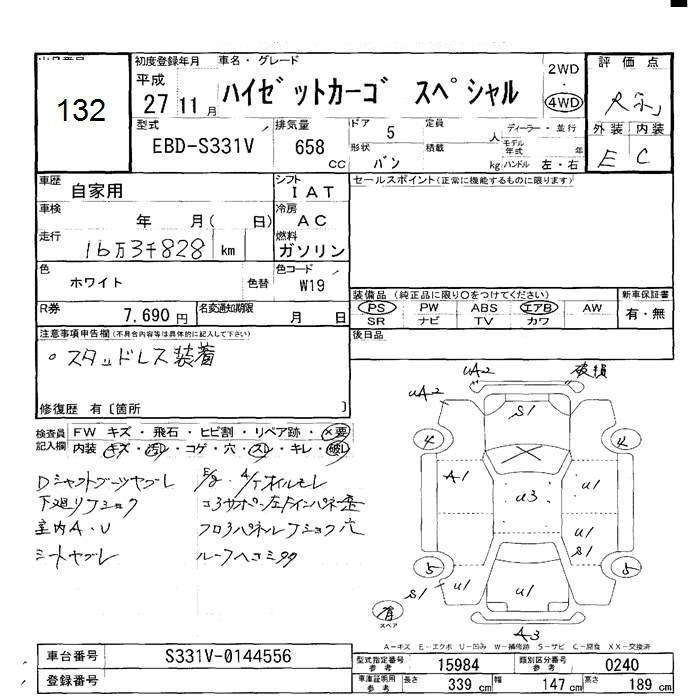 132
初度登録年月
平成
27 11 月
車名・グレード
ハイゼットカーゴ スペシャル
2WD
・
4WD
評価点
外装 内装
E C
型式
EBD-S331V
排気量
658
CC
ドア
5
形状
バン
定員
人
積載
kg
ディーラー・並行
モデル
年式
年
ハンドル 左・右
車歴
自家用
シフト
IAT
車検
年 月( 日)
冷房
AC
走行
16万3千828 km
燃料
ガソリン
色
ホワイト
色替
色コード
W19
R券
7,690 円
名変通知期限
月 日
セールスポイント(正常に機能するものに限ります)
装備品(純正品に限り○をつけてください)
PS PW ABS エアB AW
SR ナビ TV カワ
新車保証書
有・無
後日品
注意事項申告欄(不具合内容等は具体的に記入して下さい)
・スタッドレス装着
修復歴 有〔箇所 〕
検査員
記入欄
FW キズ・飛石・ヒビ割・リペア跡・×要
内装 キズ・汚レ・コゲ・穴・スレ・キレ・破レ
Dシャフトブーツヤブレ
下廻りフショク
室内A・U
シートヤブレ
ルーフヘコミ
UA2
UA2
破損
S1
4
4
A1
U3
U1
U1
S1
5
5
S1
U1
U1
A3
有
スペア
A-キズ E-エクボ U-凹み W-補修跡 S-サビ C-腐食 XX-交換済
車台番号
S331V-0144556
登録番号
型式指定番号
参考
15984
類別区分番号
参考
0240
車庫証明用
参考
長さ
339 cm
幅
147 cm
高さ
189 cm